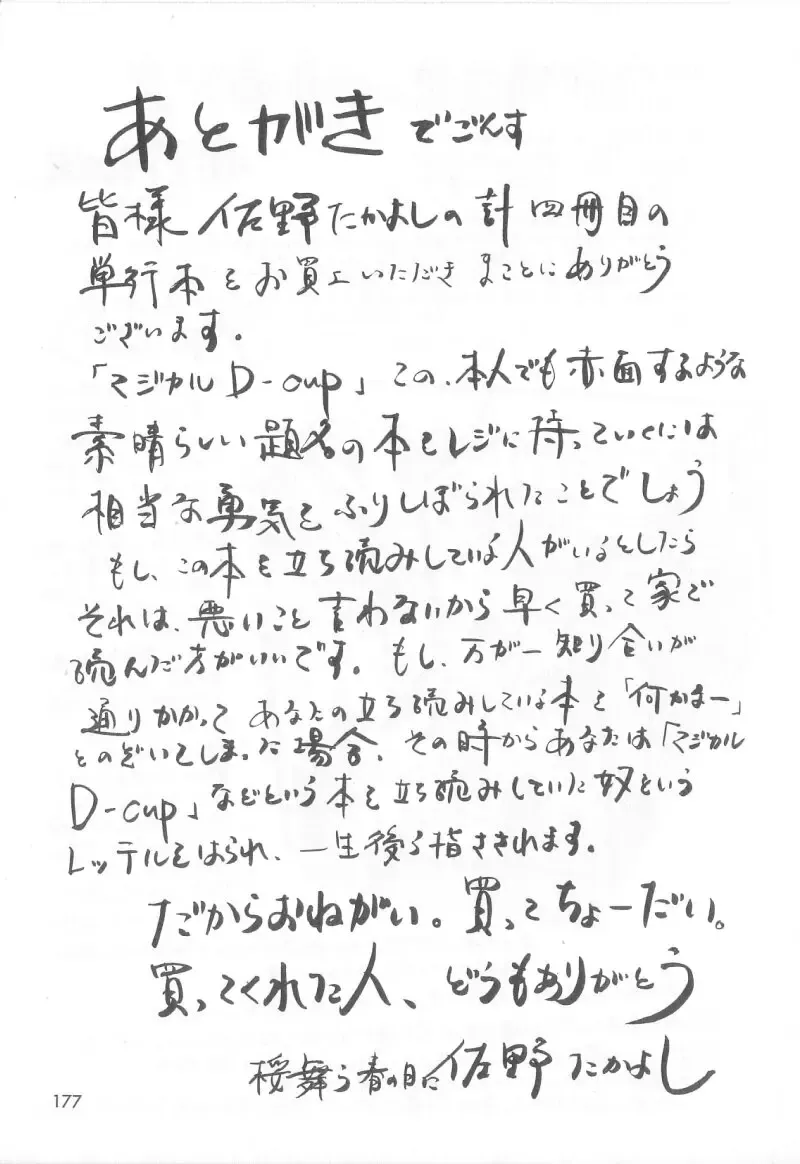 あとがき でごんす
皆様 佐野たかよしの計四冊目の
単行本をお買上いただき まことにありがとう
ございます。
「マジカルD-cup」この、本人でも赤面するような
素晴らしい題名の本をレジに持っていくには
相当な勇気をふりしぼられたことでしょう
もし、この本を立ち読みしている人がいるとしたら
それは、悪いこと言わないから早く買って家で
読んだ方がいいです。もし、万が一知り合いが
通りかかって あなたの立ち読みしている本を「何かなー」
とのぞいてしまった場合、その時からあなたは「マジカル
D-cup」などという本を立ち読みしていた奴という
レッテルをはられ、一生後ろ指さされます。
だからおねがい。買ってちょーだい。
買ってくれた人、どうもありがとう
桜舞う春の日に 佐野たかよし
177